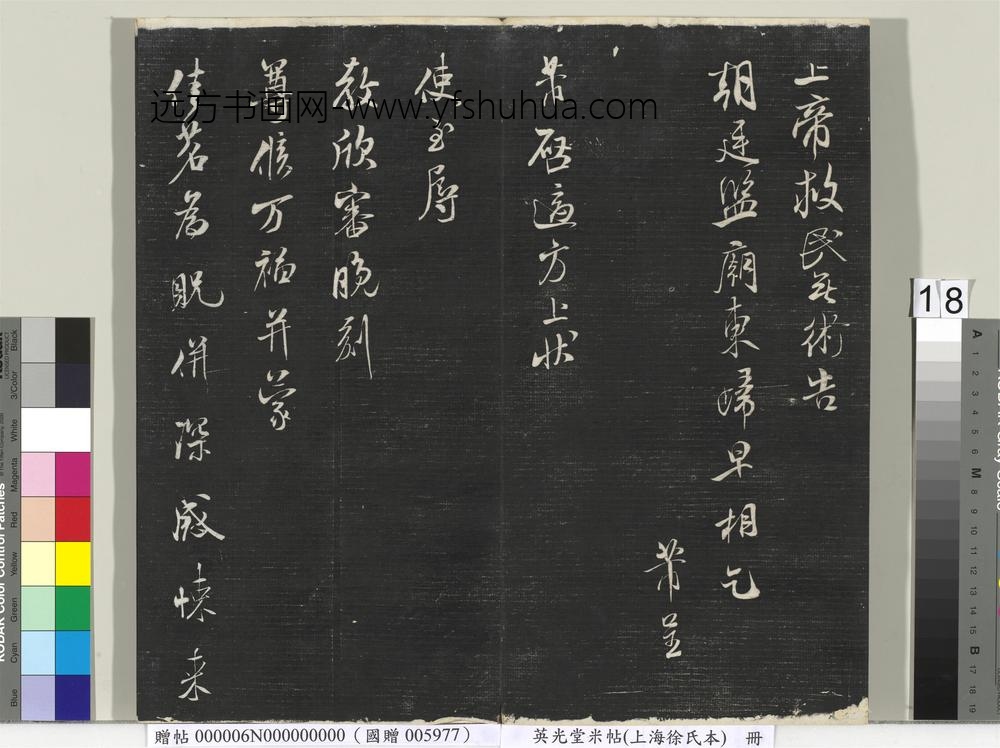 上帝救民無術告
朝廷監廟東歸早相乞
芾呈
芾啓適方上狀
使至辱
教欣審晚刻
尊候万福并蒙
佳茗為貺併深感悚来
远方书画网-www.yfshuhua.com
18
贈帖 000006N000000000（國贈 005977）
英光堂米帖(上海徐氏本) 冊
KODAK Color Control Patches
Blue Cyan Green Yellow Red Magenta White 3/Color Black
A 1 2 3 4 5 6 M 8 9 10 11 12 13 14 15 B 17 18 19